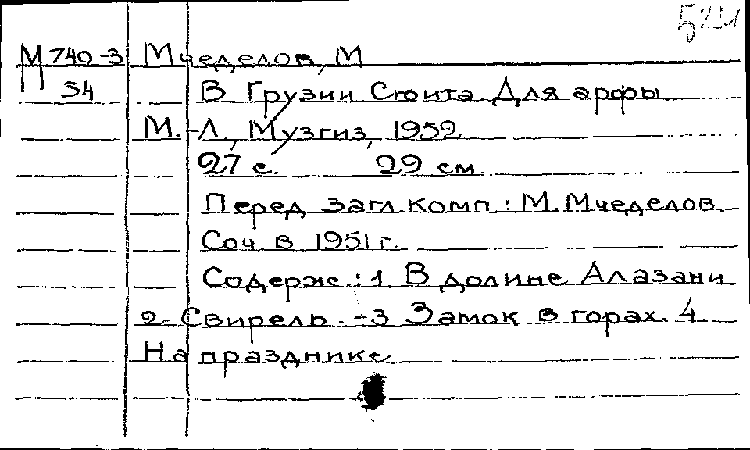 М 740-3 Мчеделов, М
34 В Грузии Сюита Для арфы
М.-Л., Музгиз, 1952
27 с. 29 см
Перед загл. комп: М. Мчеделов
Соч в 1951 г.
Содерж: 1 В долине Алазани
2- Свирель. -3 Замок в горах. 4
На празднике